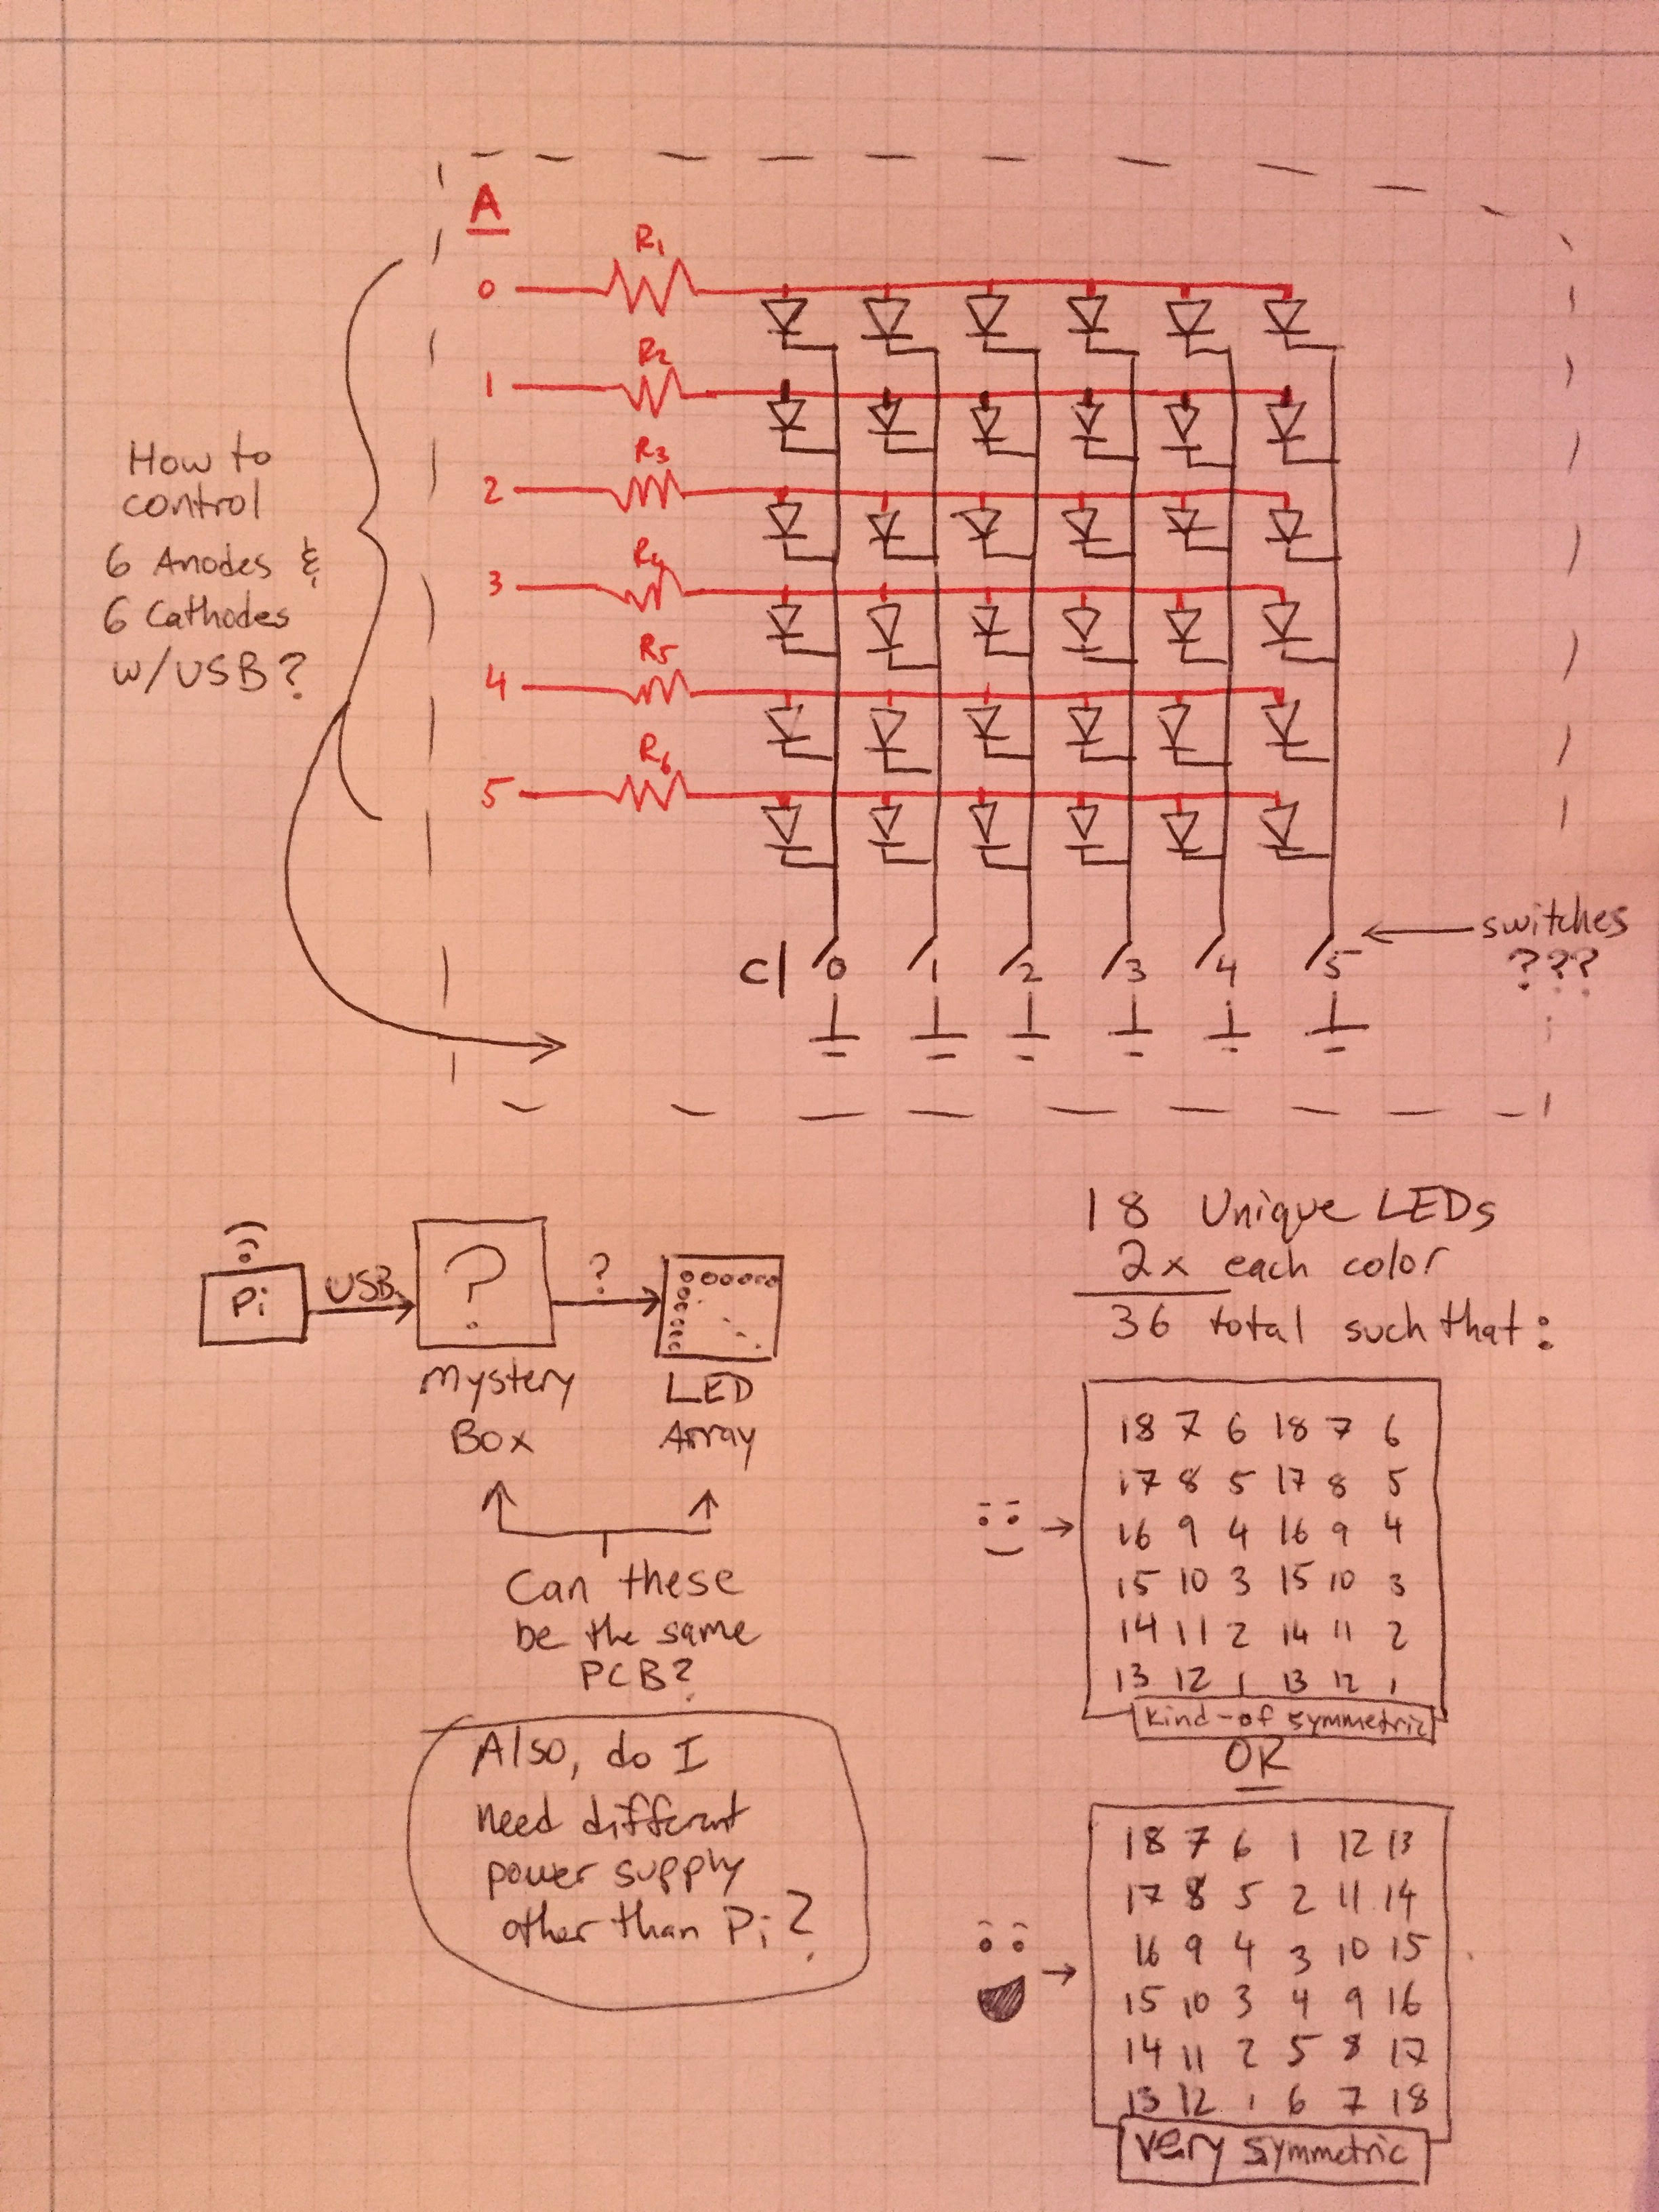 A
R1
0
R2
1
R3
2
R4
3
R5
4
R6
5
How to
control
6 Anodes &
6 Cathodes
w/USB?
C| 0 1 2 3 4 5
switches
???
Pi
USB
?
?
Mystery
Box
LED
Array
Can these
be the same
PCB?
Also, do I
need different
power supply
other than Pi?
18 Unique LEDs
2x each color
36 total such that:
18 7 6 18 7 6
17 8 5 17 8 5
16 9 4 16 9 4
15 10 3 15 10 3
14 11 2 14 11 2
13 12 1 13 12 1
kind-of symmetric
OR
18 7 6 1 12 13
17 8 5 2 11 14
16 9 4 3 10 15
15 10 3 4 9 16
14 11 2 5 8 17
13 12 1 6 7 18
very symmetric